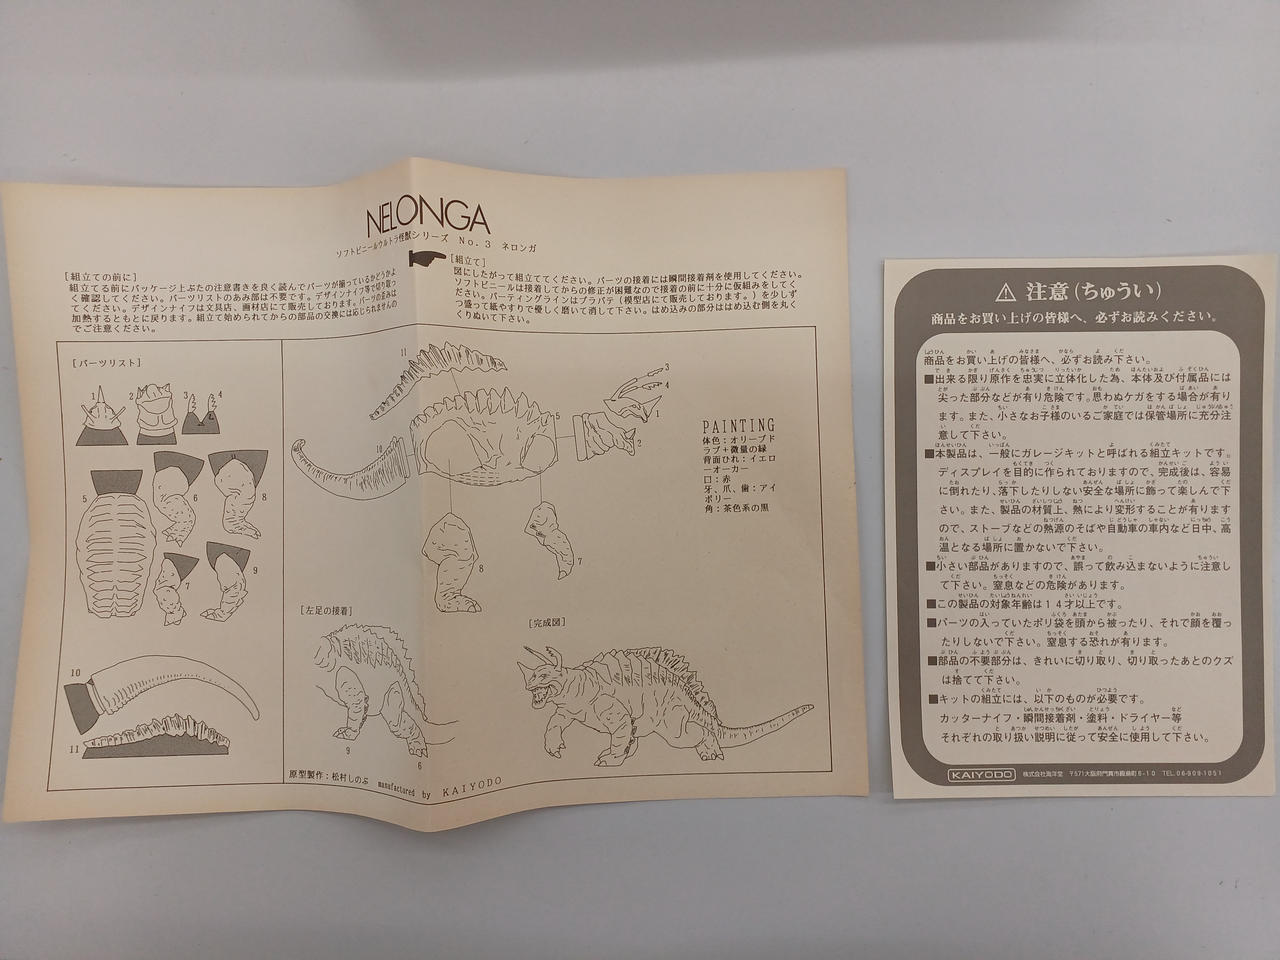 NELONGA
ソフトビニールウルトラ怪獣シリーズ No.3 ネロンガ
[組立ての前に]
組立てる前にパッケージ上ぶたの注意書きを良く読んでパーツが揃っているかどうかよ
く確認してください。パーツリストのあみ部は不要です。デザインナイフ等で切り取っ
てください。デザインナイフは文具店、画材店にて販売しております。パーツの歪みは
加熱するともとに戻ります。組立て始められてからの部品の交換には応じられませんの
でご注意ください。
[組立て]
図にしたがって組立ててください。パーツの接着には瞬間接着剤を使用してください。
ソフトビニールは接着してからの修正が困難なので接着の前に十分に仮組みをしてく
ださい。パーティングラインはプラパテ(模型店にて販売しております。)を少しず
つ盛って紙やすりで優しく磨いて消して下さい。はめ込みの部分ははめ込む側を丸く
くりぬいて下さい。
[パーツリスト]
1
2
3
4
5
6
8
7
9
10
11
11
10
5
3
4
1
2
8
7
PAINTING
体色:オリーブド
ラブ+微量の緑
背面ひれ:イエロ
ーオーカー
口:赤
牙、爪、歯:アイ
ボリー
角:茶色系の黒
[左足の接着]
9
6
[完成図]
原型製作:松村しのぶ manufactured by KAIYODO
注意(ちゅうい)
商品をお買い上げの皆様へ、必ずお読みください。
商品をお買い上げの皆様へ、必ずお読み下さい。
■出来る限り原作を忠実に立体化した為、本体及び付属品には
尖った部分などが有り危険です。思わぬケガをする場合が有り
ます。また、小さなお子様のいるご家庭では保管場所に充分注
意して下さい。
■本製品は、一般にガレージキットと呼ばれる組立キットです。
ディスプレイを目的に作られておりますので、完成後は、容易
に倒れたり、落下したりしない安全な場所に飾って楽しんで下
さい。また、製品の材質上、熱により変形することが有ります
ので、ストーブなどの熱源のそばや自動車の車内など日中、高
温となる場所に置かないで下さい。
■小さい部品がありますので、誤って飲み込まないように注意し
て下さい。窒息などの危険があります。
■この製品の対象年齢は14才以上です。
■パーツの入っていたポリ袋を頭から被ったり、それで顔を覆っ
たりしないで下さい。窒息する恐れが有ります。
■部品の不要部分は、きれいに切り取り、切り取ったあとのクズ
は捨てて下さい。
■キットの組立には、以下のものが必要です。
カッターナイフ・瞬間接着剤・塗料・ドライヤー等
それぞれの取り扱い説明に従って安全に使用して下さい。
KAIYODO 株式会社海洋堂 〒571大阪府門真市殿島町6-10 TEL.06-909-1051